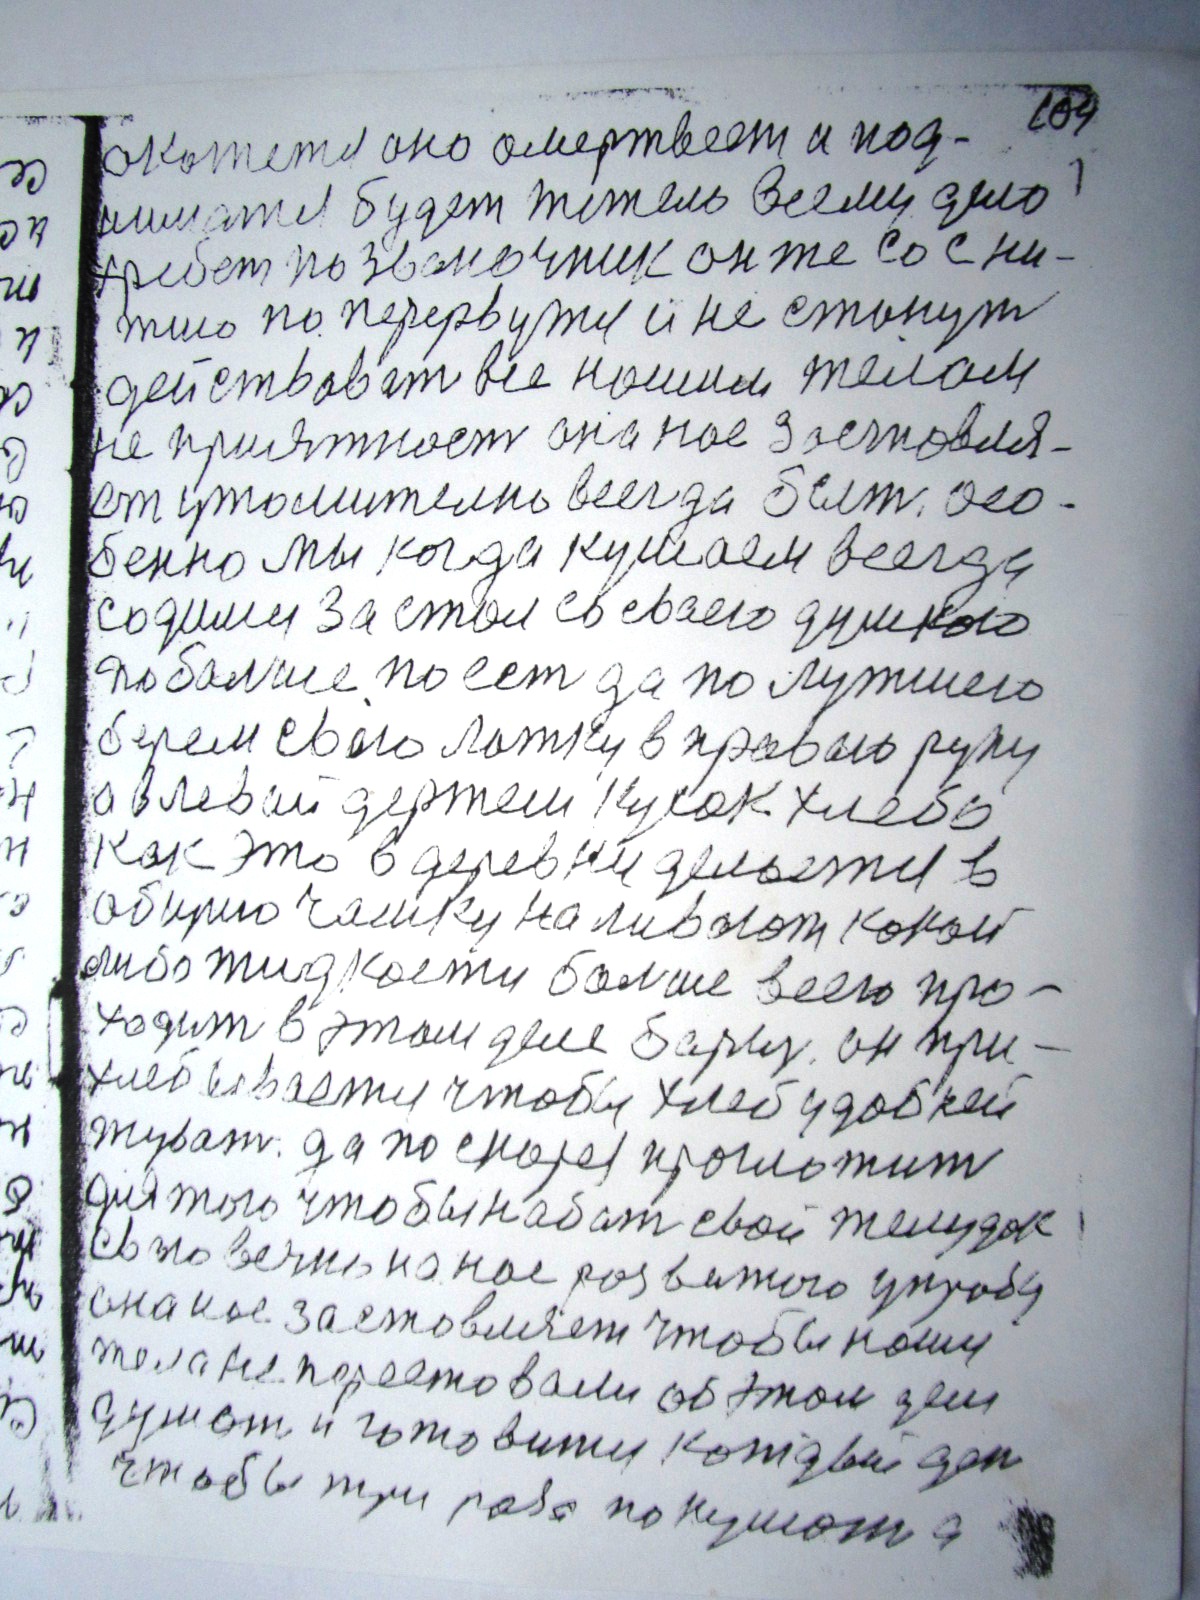 104
окажется оно омертвеет и под-
ниматся будет тежело всему дело
хребет позвоночник он же со сни-
жило по перервутся и не станут
действоват все нашим телам
не приятност она нас заставля-
ет утомително всегда быт. осо-
бенно мы когда кушаем всегда
садимся за стол со своею душкою
побалше поест да по лутшего
берем свою ложку в правою руку
а в левай держем кусок хлеба
как это в деревни делается в
общую чашку наливают какой
либо жидкости болше всего про-
ходит в этом деле барщ. он при-
хлебывается чтобы хлеб удобней
жуват. да по скорея проглотит
для того чтобы набат свой желудок
свою вечно на нас развитою утробу
она нас заставляет чтобы наши
тела не переставали об этом дели
думат и готовится каждый ден
чтобы три раза покушат а